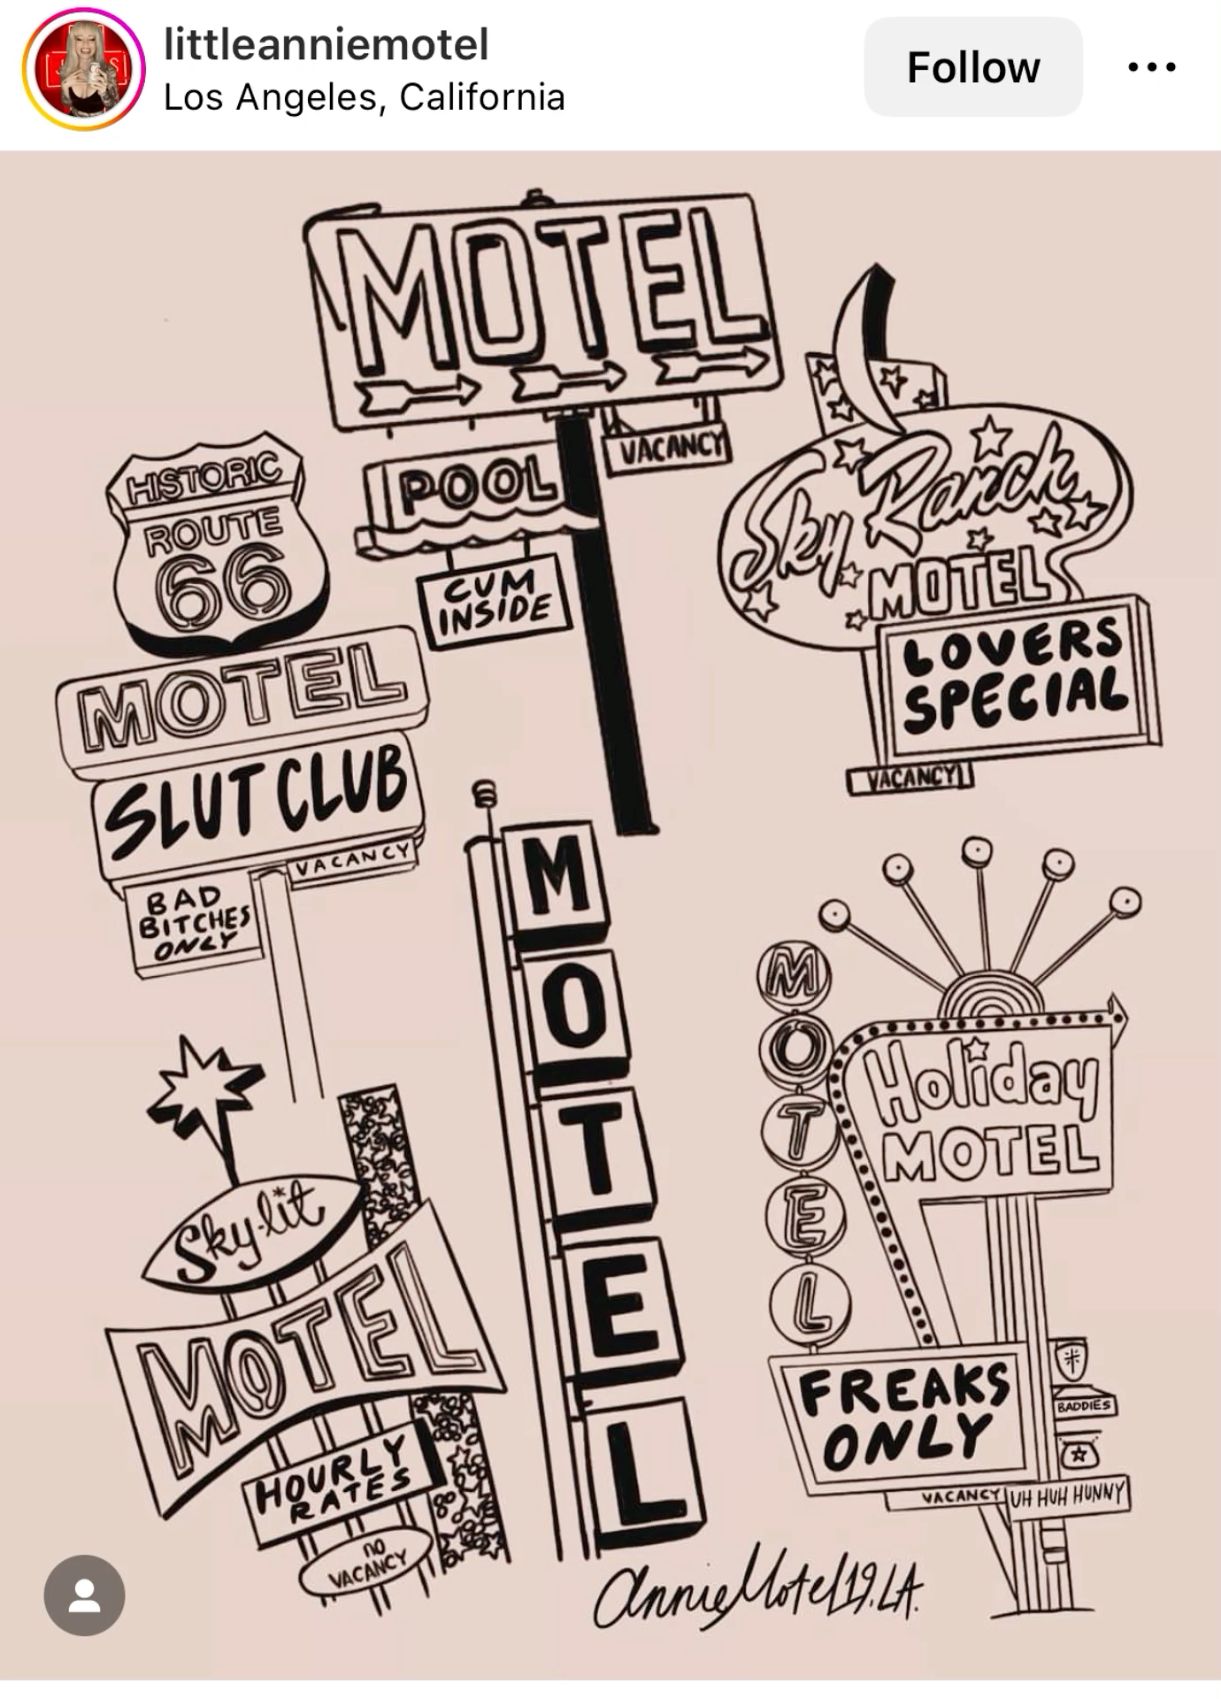 littleanniemotel
Los Angeles, California
Follow
MOTEL
VACANCY
POOL
CUM
INSIDE
HISTORIC
ROUTE
66
MOTEL
SLUT CLUB
VACANCY
BAD
BITCHES
ONLY
Sky Ranch
MOTEL
LOVERS
SPECIAL
VACANCY
M
O
T
E
L
Sky-lit
MOTEL
HOURLY
RATES
NO
VACANCY
M
O
T
E
L
Holiday
MOTEL
FREAKS
ONLY
BADDIES
VACANCY
UH HUH HUNNY
AnnieMotel19.LA.